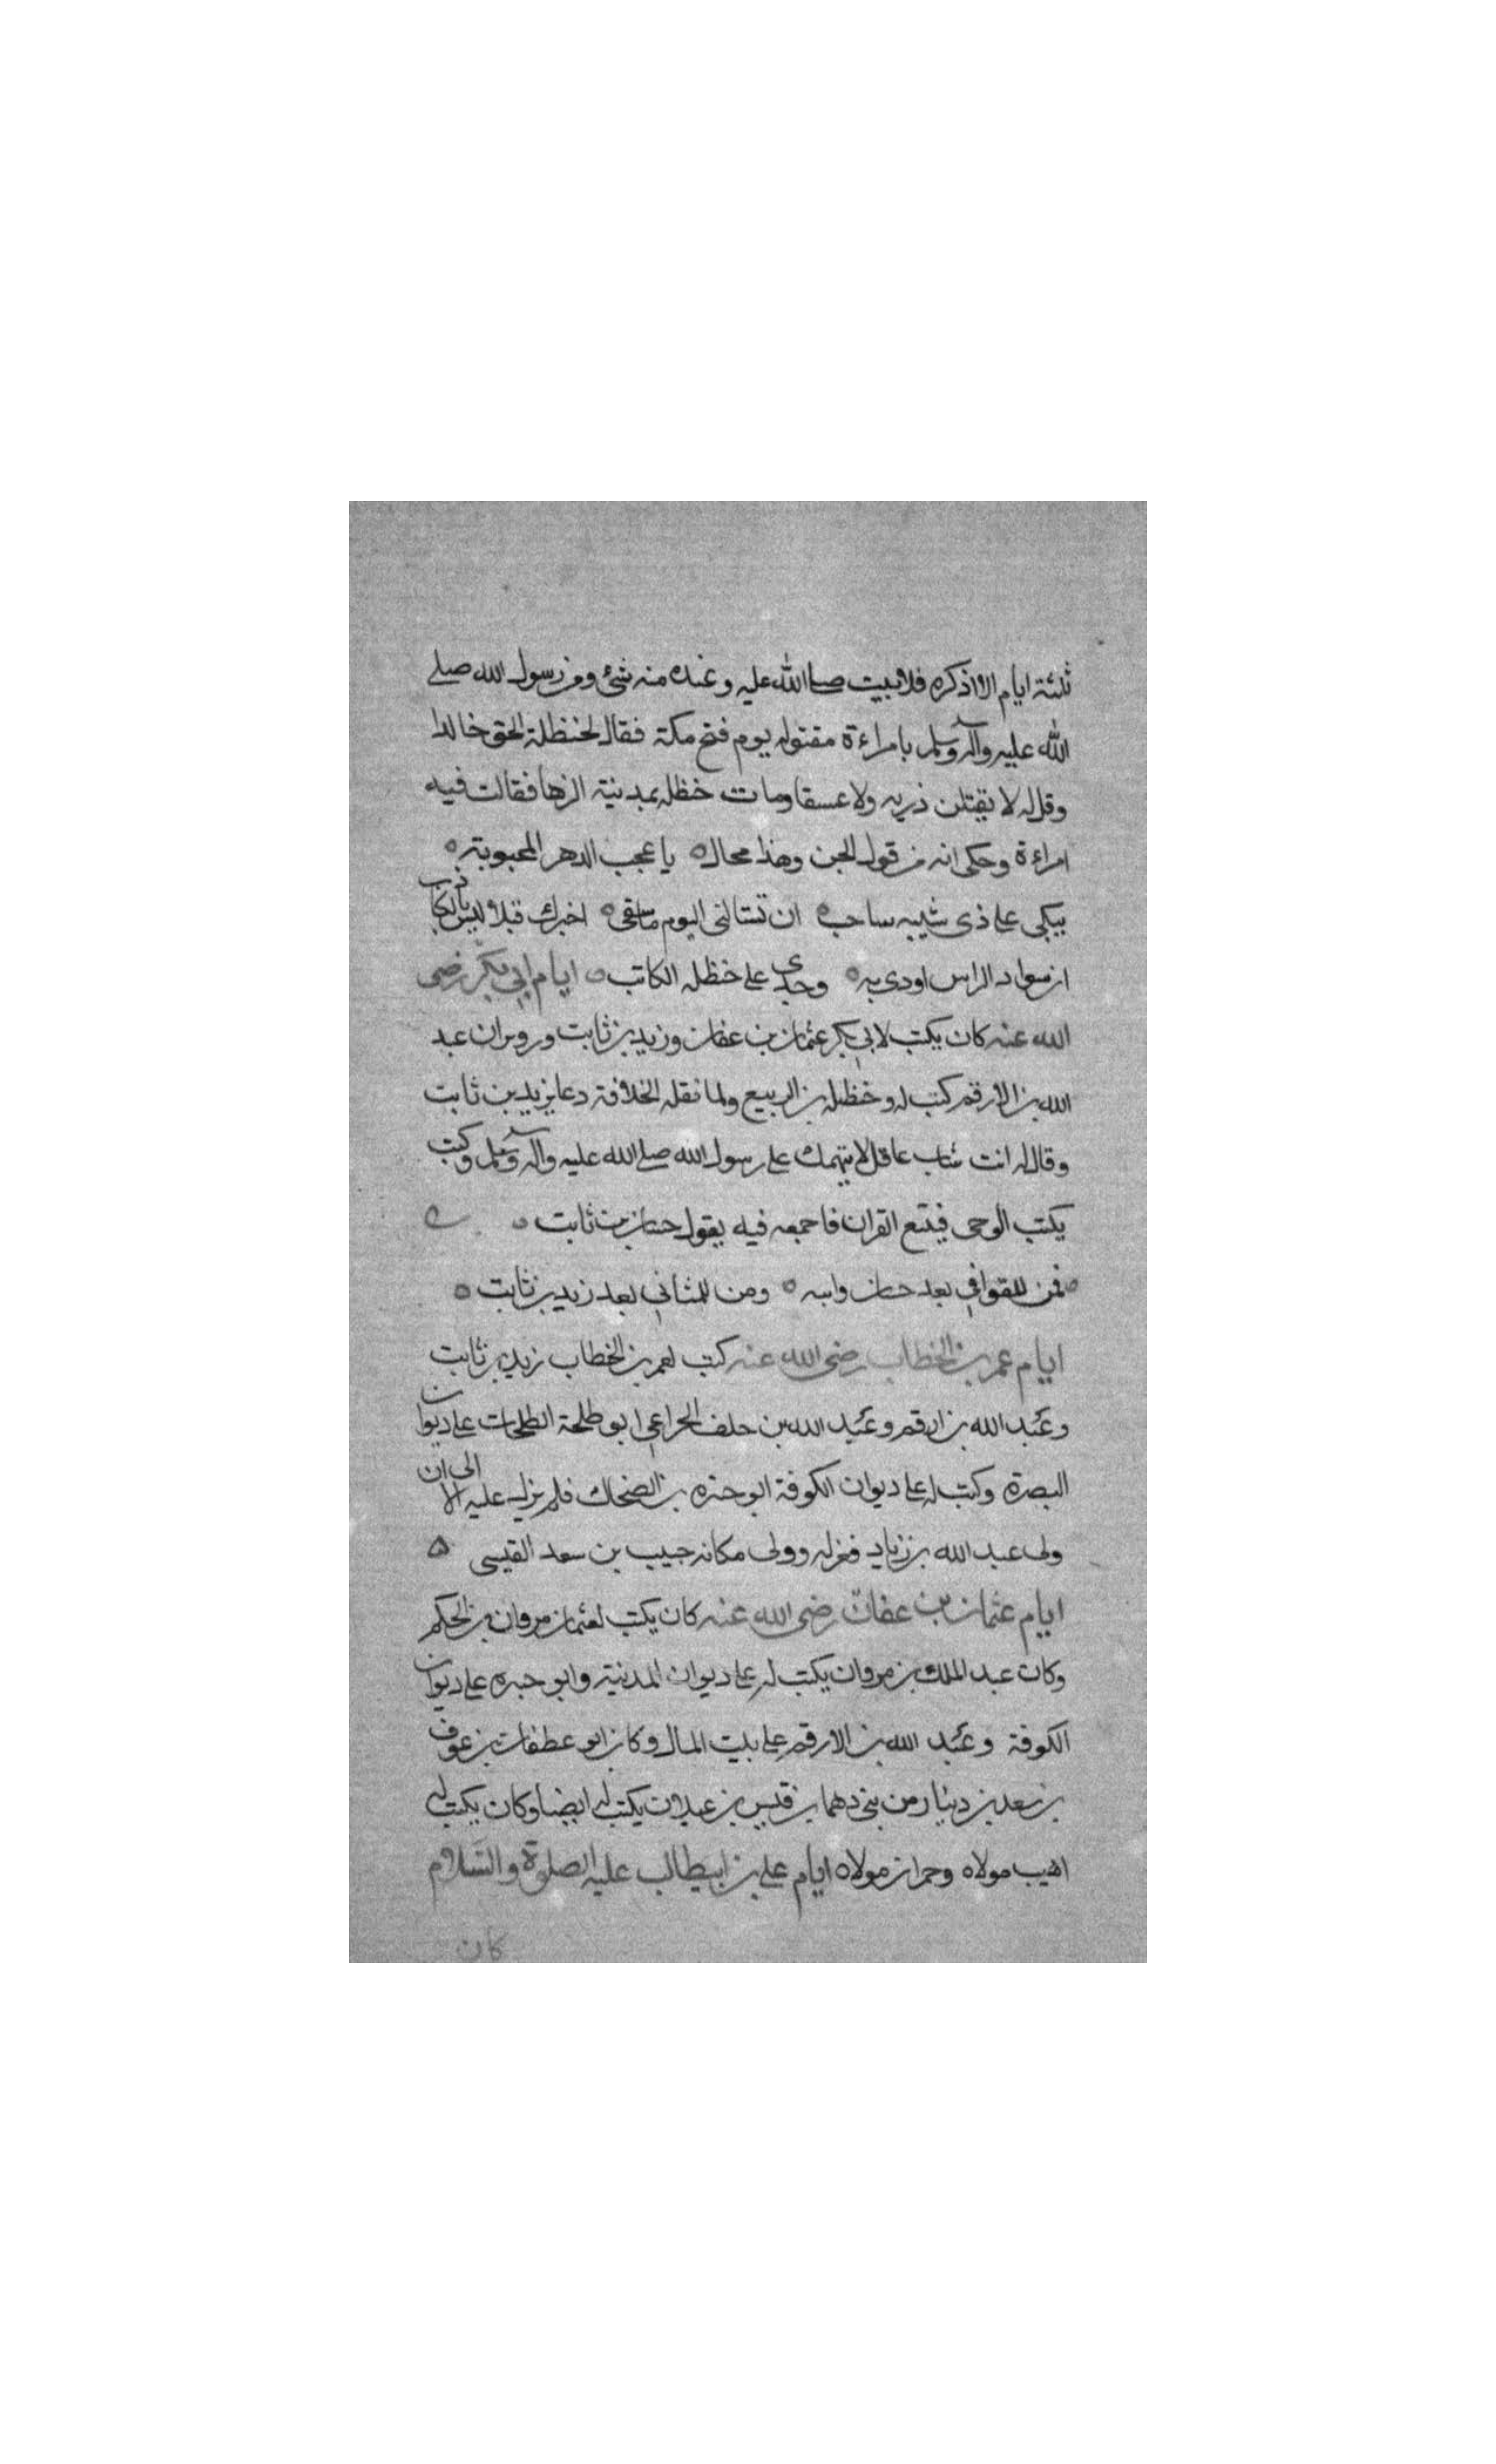 ثلثة ايام الا اذكره فلا يبيت صلى الله عليه وعنده منه شئ ومر رسول الله صلى
الله عليه وآله وسلم بامراءة مقتوله يوم فتح مكة فقال لحنظلة الحق خالدا
وقل له لا يقتلن ذريه ولا عسيفا ومات حنظله بمدينة الرها فقالت فيه
امراءة وحكى انه من قول الجن وهذا محال ه يا عجب الدهر المحبوبته ه
يبكى على ذى شيبه ساحب ه ان تسئالنى اليوم ما سقى ه اخبرك قيلا ليس بالكاذب
ان سواد الراس اودى به ه وجدى على حنظله الكاتب ه ايام ابي بكر رضى
الله عنه كان يكتب لابي بكر عثمان بن عفان وزيد بن ثابت وروى ان عبد
الله بن الارقم كتب له وحنظله بن الربيع ولما نقله الخلافة دعا يزيد بن ثابت
وقال له انت شاب عاقل لا يتهمك على رسول الله صلى الله عليه وآله وسلم وكتب
يكتب الوحى فيتبع القران فاجمعه فيه يقول حسان بن ثابت ه
ه فمن للقوافي بعد حسان وابنه ه ومن للمثاني بعد زيد بن ثابت ه
ايام عمر بن الخطاب رضى الله عنه كتب لعمر بن الخطاب زيد بن ثابت
وعبد الله بن ارقم وعبد الله بن خلف الخزاعي ابو طلحة الطلحات على ديوان
البصرة وكتب له على ديوان الكوفة ابو جبره بن الضحاك فلم يزل عليه الا الى ان
ولى عبد الله بن زياد فعزله وولى مكانه حبيب بن سعد القيسى ه
ايام عثمان بن عفان رضى الله عنه كان يكتب لعثمان مروان بن الحكم
وكان عبد الملك بن مروان يكتب له على ديوان المدينة وابو جبره على ديوان
الكوفة وعبد الله بن الارقم على بيت المال وكان ابو عطفان بن عوف
بن سعد بن دينار من بنى دهمان بن قيس بن عيلان يكتب له ايضا وكان يكتب له
اهيب مولاه وحمران مولاه ايام على بن ابيطالب عليه الصلوة والسلام
كان